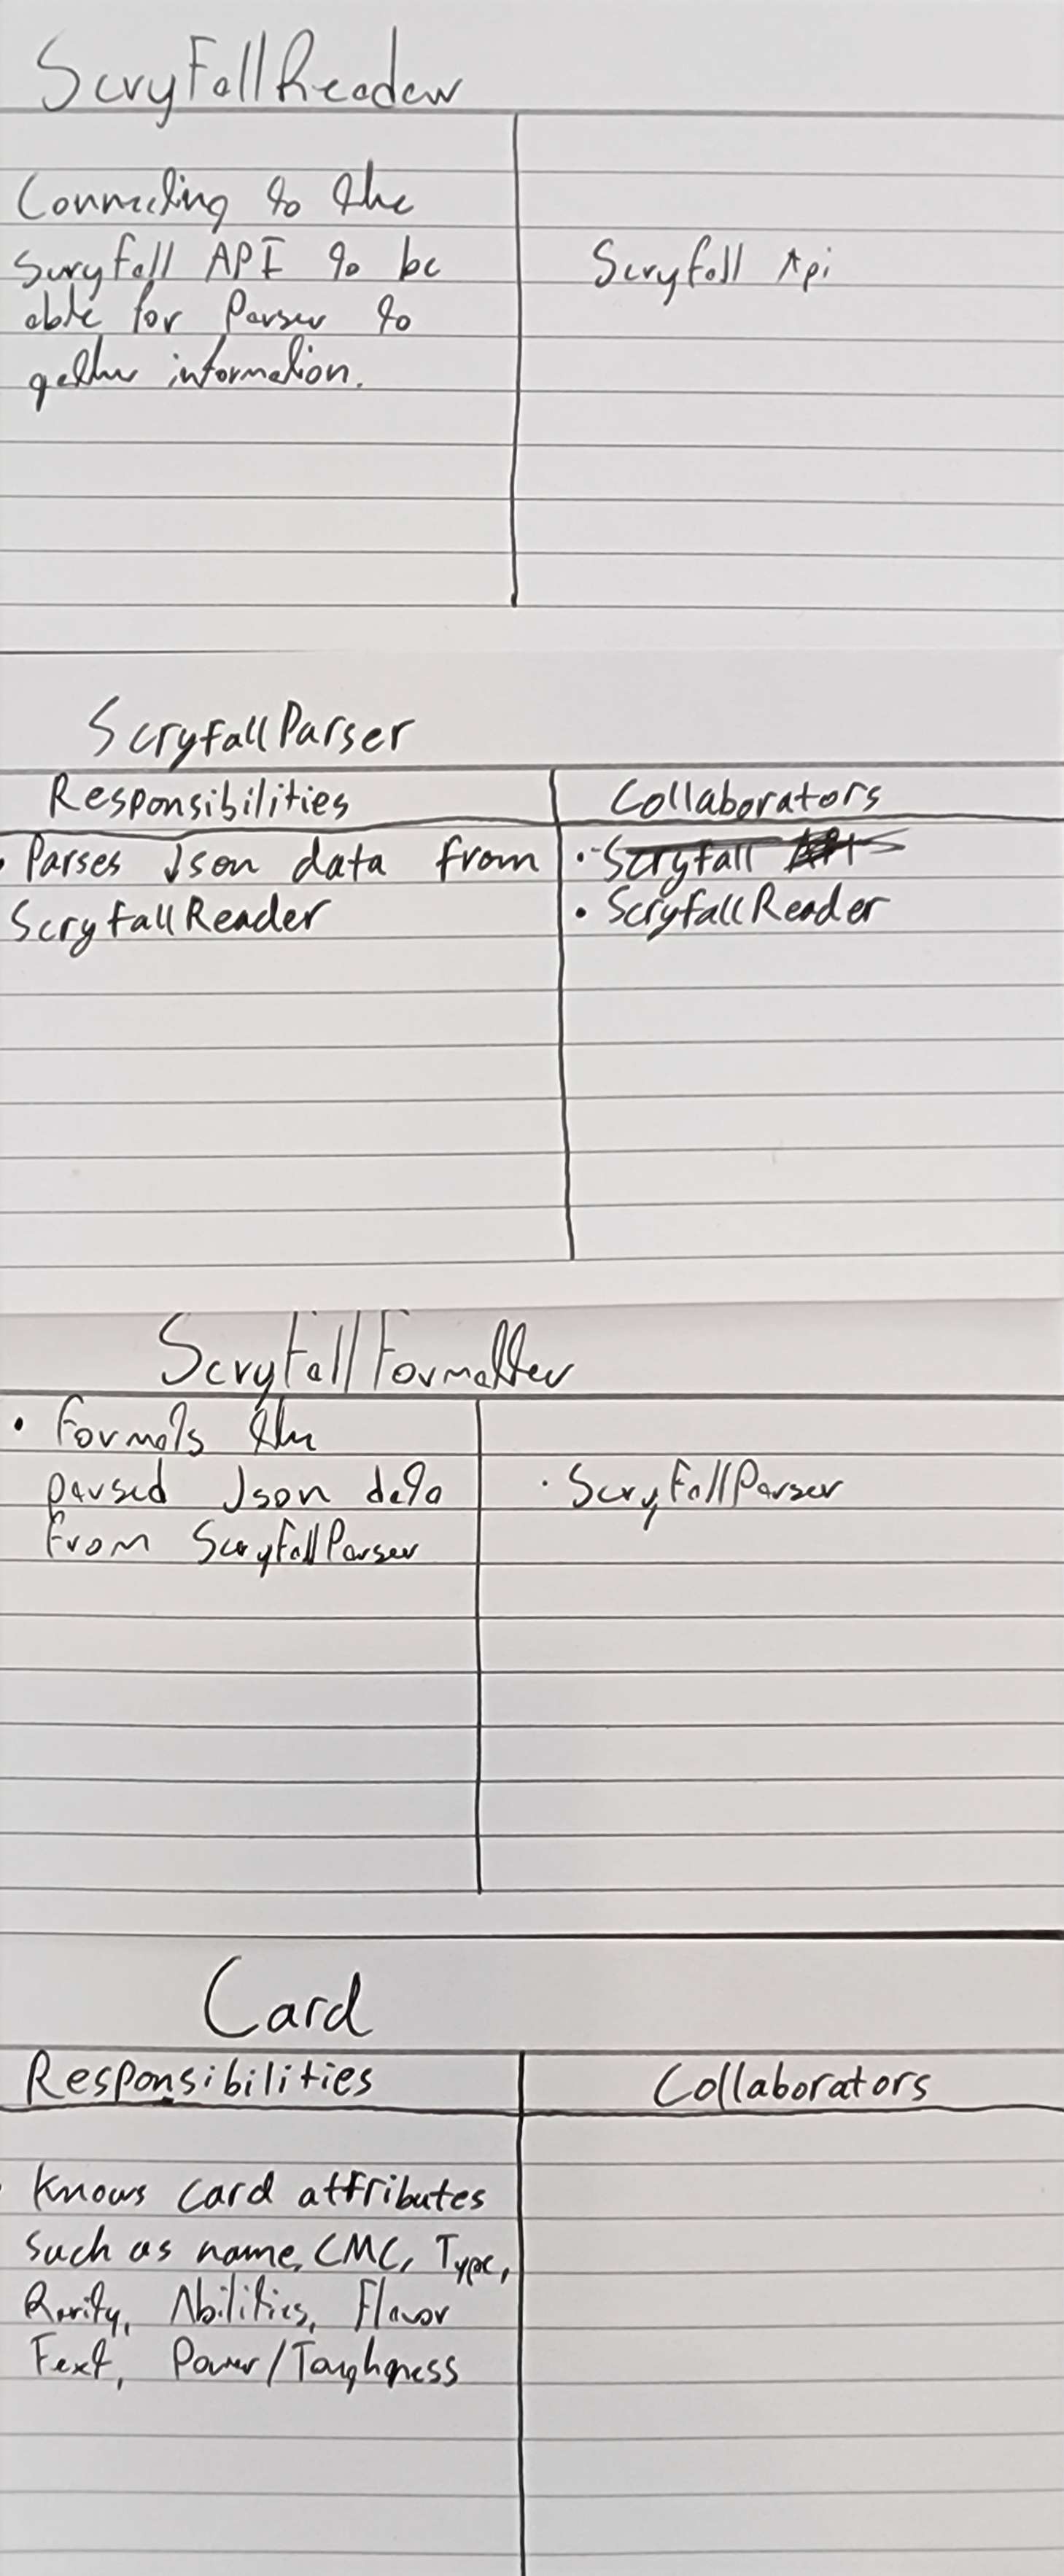 ScryFallReader
Connecting to the
Scryfall API to be
able for Parser to
gather information.
Scryfall Api
ScryfallParser
Responsibilities
Collaborators
• Parses Json data from
ScryfallReader
• Scryfall API
• ScryfallReader
ScryFallFormatter
• Formats the
parsed Json data
from ScryfallParser
• ScryFallParser
Card
Responsibilities
Collaborators
• Knows card attributes
such as name, CMC, Type,
Rarity, Abilities, Flavor
Text, Power/Toughness